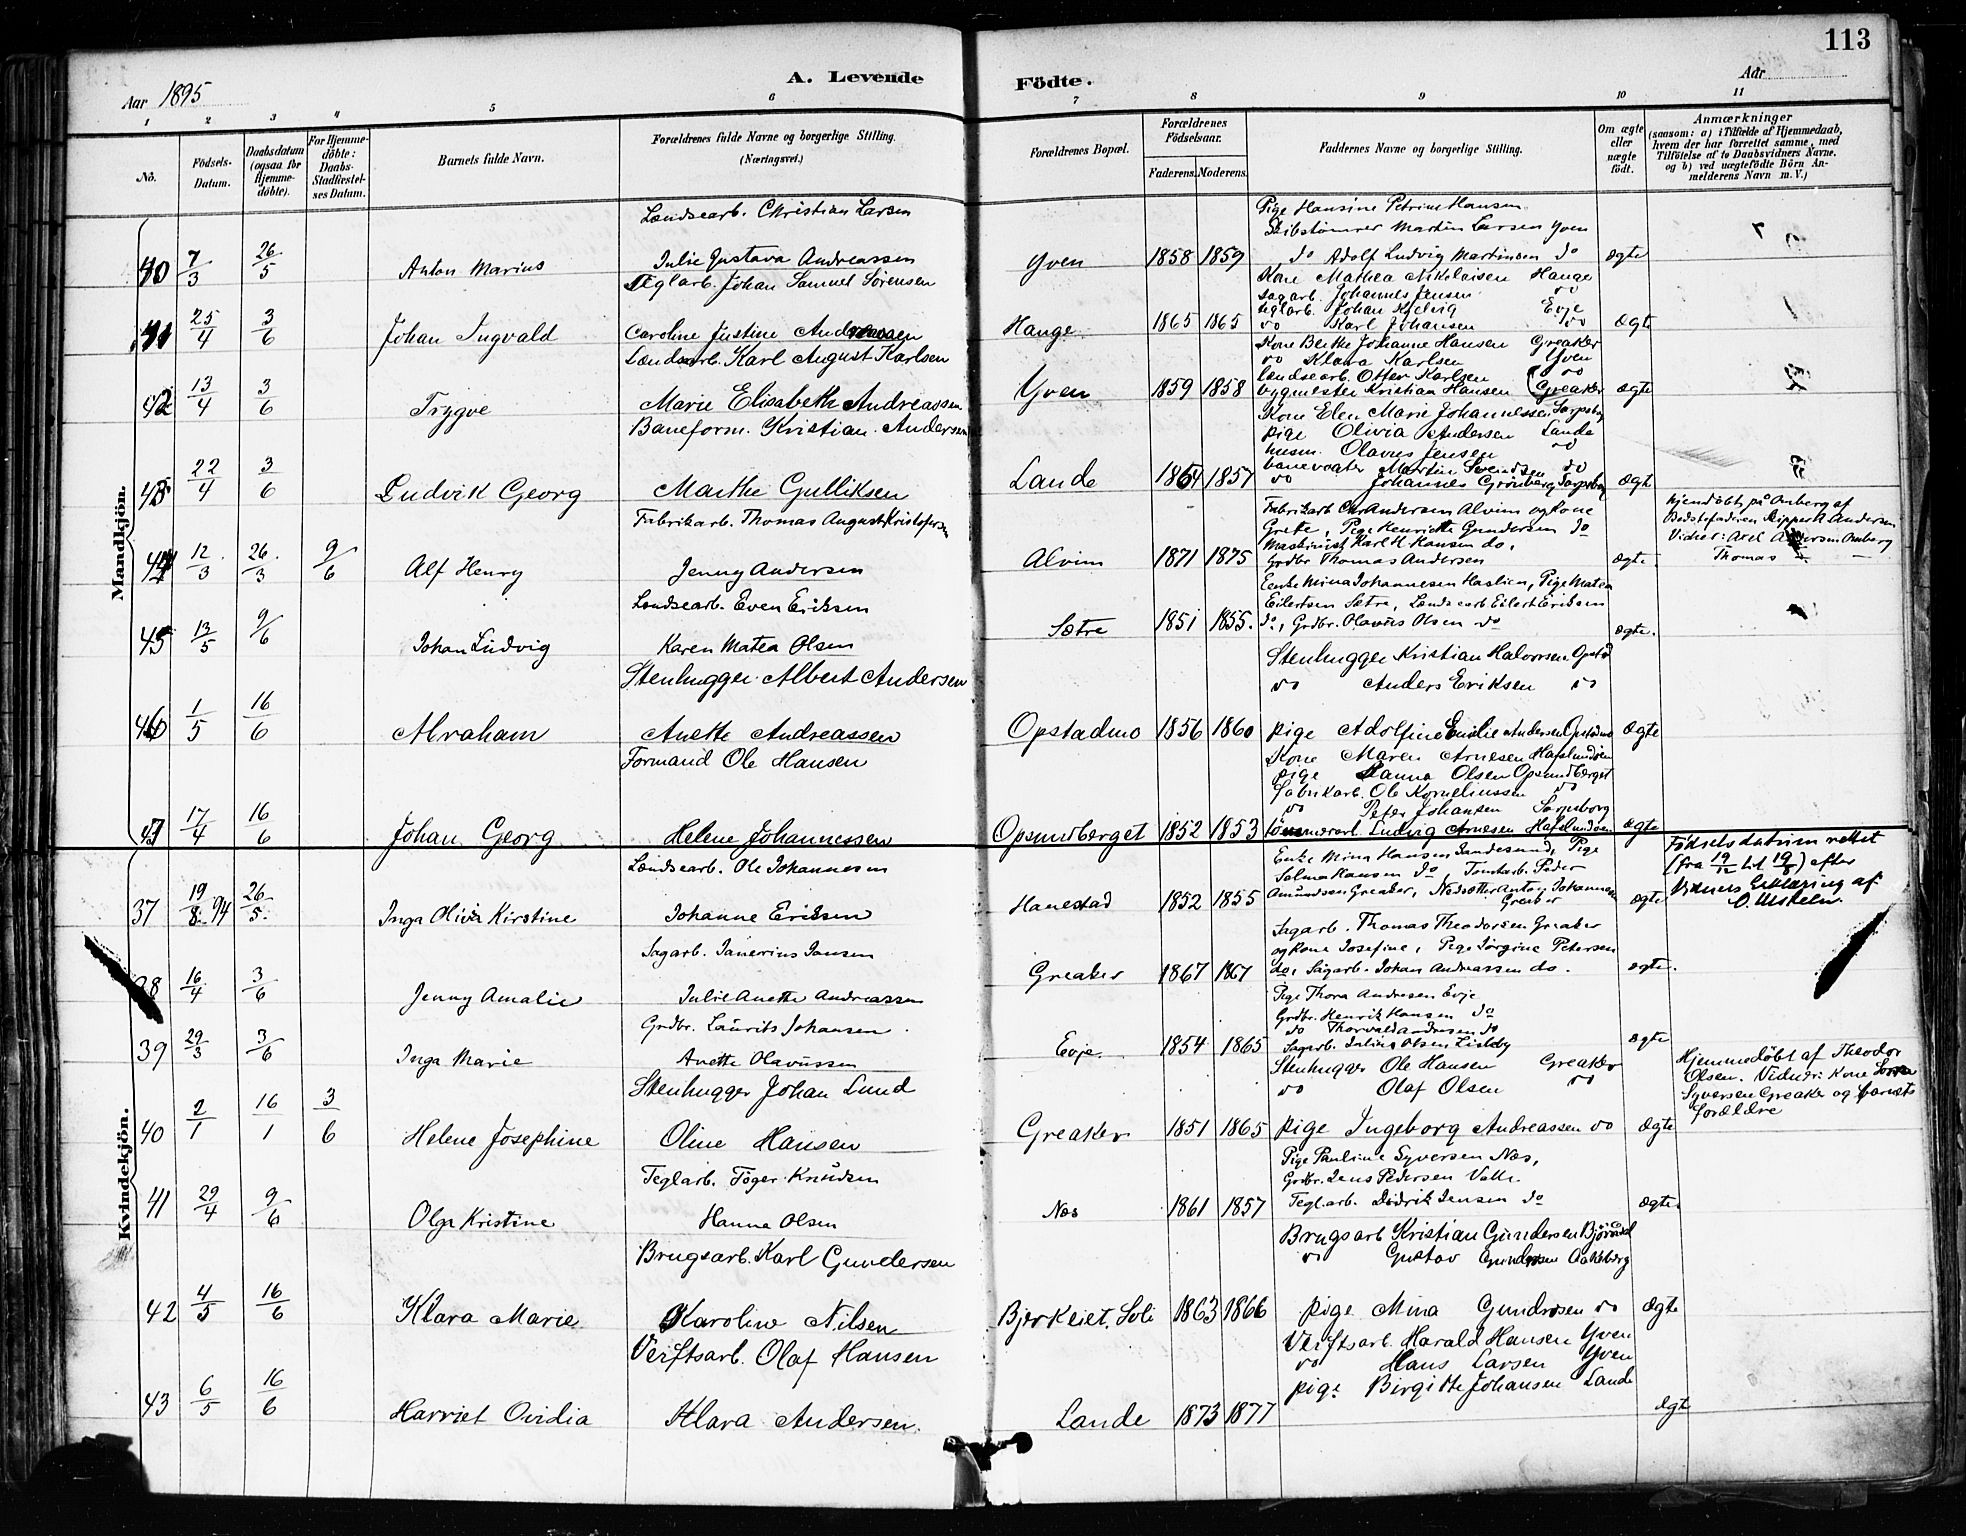 113
A. Levende Födte.
Aar 1895
Aar
1 2 3 4 5 6 7 8 9 10 11
No.
Födsels-Datum.
Daabsdatum (ogsaa för Hjemme-döbte).
For Hjemme-döbte: Daabs Stadfæstel-ses Datum.
Barnets fulde Navn.
Forældrenes fulde Navne og borgerlige Stilling.
(Næringsvei.)
Forældrenes Bopæl.
Forældrenes Födselsaar.
Faderens. Moderens.
Faddernes Navne og borgerlige Stilling.
Om ægte eller uægte födt.
Anmærkninger
(saasom: a) i Tilfælde af Hjemmedaab, hvem der har forrettet samme, med Tilföielse af to Daabsvidners Navne. og b) ved uægtefödte Börn An-melderens Navn m. V.)
Mandkjön.
Landsearb. Christian Larsen
Pige Hansine Petrine Hansen
Skibstømrer Martin Larsen Yven
40 7/3 26/5 Anton Marius Julie Gustava Andreassen Yven 1858 1859 do Adolf Ludvig Martinsen do ægte
Teglarb. Johan Samuel Sørensen
Kone Mathea Nikolaisen Hauge
Sagarb. Johannes Jensen do
teglarb. Johan Kjølvig Evje
41 25/4 3/6 Johan Ingvald Caroline Justine Andreassen Hauge 1865 1865 do Karl Johansen do Ægte
Landsearb. Karl August Karlsen
Kone Berthe Johanne Hansen Greaker
do Klara Karlsen Yven
landsearb. Otter Karlsen do
42 13/4 3/6 Trygve Marie Elisabeth Andreassen Yven 1859 1858 bygmester Kristian Hansen Greaker ægte
Baneform. Kristian Andersen
Kone Elen Marie Johannessen Sarpsborg
pige Olivia Andersen Lande
husm. Olavus Jensen do
banevogter Martin Svendsen do
43 22/4 3/6 Ludvik Georg Marthe Gulliksen Lande 1854 1857 do Johannes Grønberg Sarpsborg ægte
Fabrikarb. Thomas August Kristofersen
Fabrikarb Chr Andersen Alvim og Kone
Grete, Pige Henriette Gundersen do
Maskinist Karl H Hansen do,
Hjemdøbt på Anberg af
Bedstefaderen Skipper A Andersen
Vidner: Axel Andersen Anberg
Thomas
44 12/3 26/3 9/6 Alf Henry Jenny Andersen Alvim 1871 1875 Grdbr Thomas Andersen ægte.
Landsearb. Even Eriksen
Enke Mina Johannesen Haslien, Pige Matea
Eilertsen Sætre, Landsearb Eilert Eriksen
45 13/5 9/6 Johan Ludvig Karen Matea Olsen Sætre 1851 1855. do, Grdbr. Olavus Olsen do ægte.
Stenhugger Albert Andersen
Stenhugger Kristian Halvorsen Opstad
do Anders Eriksen do
46 1/5 16/6 Abraham Anette Andreassen Opstadmo 1856 1860 pige Adolfine Emilie Andersen Opstadmo Ægte
Formand Ole Hansen
Kone Maren Arnesen Hafslundsøen
pige Hanna Olsen Opsundberget
Fabrikarb. Ole Korneliussen do
do Peter Johansen Sarpsborg
47 17/4 16/6 Johan Georg Helene Johannessen Opsundberget 1852 1853 tømmerarb. Ludvig Arnesen Hafslundsøen ægte
Kvindekjön.
Landsearb. Ole Johannesen
Enke Mina Hansen Sandesund, Pige
Selma Hansen do, Tomtarb. Peder
Amundsen Greaker, Anton Johannesen
Greaker
Födselsdatum rettet
(fra 19/12 til 19/8) efter
Erklæring af
37 19/8 94 26/5 Inga Olivia Kirstine Johanne Eriksen Hanestad 1852 1855 ægte
Sagarb. Janerius Jansen
Sagarb. Thomas Theodorsen Greaker
og Kone Josefine, Pige Jørgine Petersen
38 16/4 3/6 Jenny Amalie Julie Anette Andreassen Greaker 1867 1867 do, Sagarb. Johan Andreassen do. ægte.
Grdbr. Laurits Johansen
Pige Thora Andresen Evje
Grdbr. Henrik Hansen do
do Thorvald Andresen do
39 29/3 3/6 Inga Marie Anette Olavussen Evje 1854 1865 Sagarb. Julius Olsen Lisleby ægte
Stenhugger Johan Lund
Stenhugger Ole Hansen Greaker
do Olaf Olsen do
Hjemmedøbt af Theodor
Olsen. Vidner: Kone
Syversen Greaker og barnets
forældre
40 2/1 16/1 3/6 Helene Josephine Oline Hansen Greaker 1851 1865 pige Ingeborg Andreassen do Ægte
Teglarb. Tøger Knudsen
Pige Pauline Syversen Næs,
Grdbr. Jens Pedersen Valle
41 29/4 9/6 Olga Kristine Hanna Olsen Næs 1861 1857 Teglarb. Didrik Jensen do ægte.
Brugsarb. Karl Gundersen
Brugsarb Kristian Gundersen
do Gustav Gundersen Aakeberg
42 4/5 16/6 Klara Marie Karoline Nilsen Bjerkeiet, Soli 1863 1866 pige Mina Gundersen do Ægte
Verftsarb. Olaf Hansen
Verftsarb. Harald Hansen Yven
do Hans Larsen Yven
pige Birgitte Johansen Lande
43 6/5 16/6 Harriet Ovidia Klara Andersen. Lande 1873 1877 Ægte